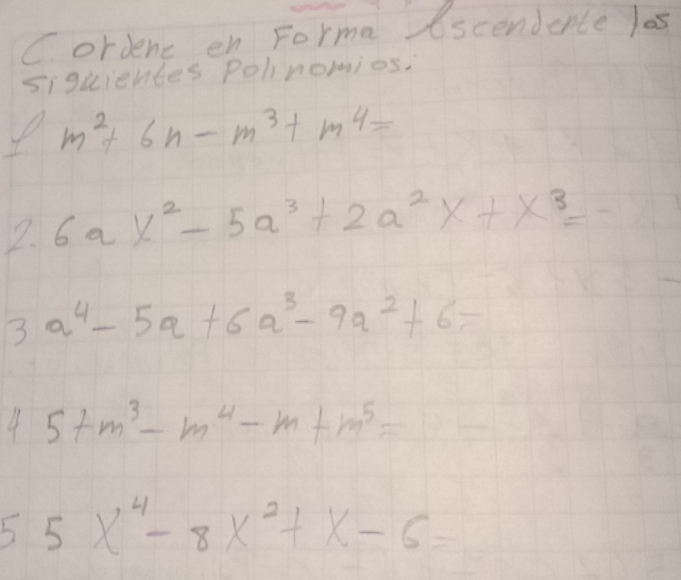 C. ordene en Forma Ascendente los
siguientes Polinomios.
1 m² + 6n - m³ + m⁴ =
2. 6ax² - 5a³ + 2a²x + x³ =
3 a⁴ - 5a + 6a³ - 9a² + 6 =
4 5 + m³ - m⁴ - m + m⁵ =
5 5x⁴ - 8x² + x - 6 =